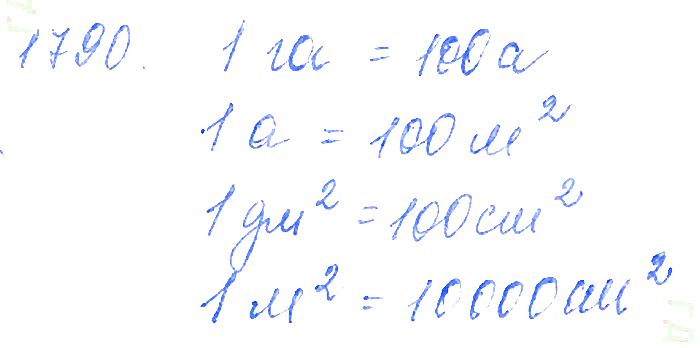 1790. 1 га = 100 а
1 а = 100 м²
1 дм² = 100 см²
1 м² = 10000 см²